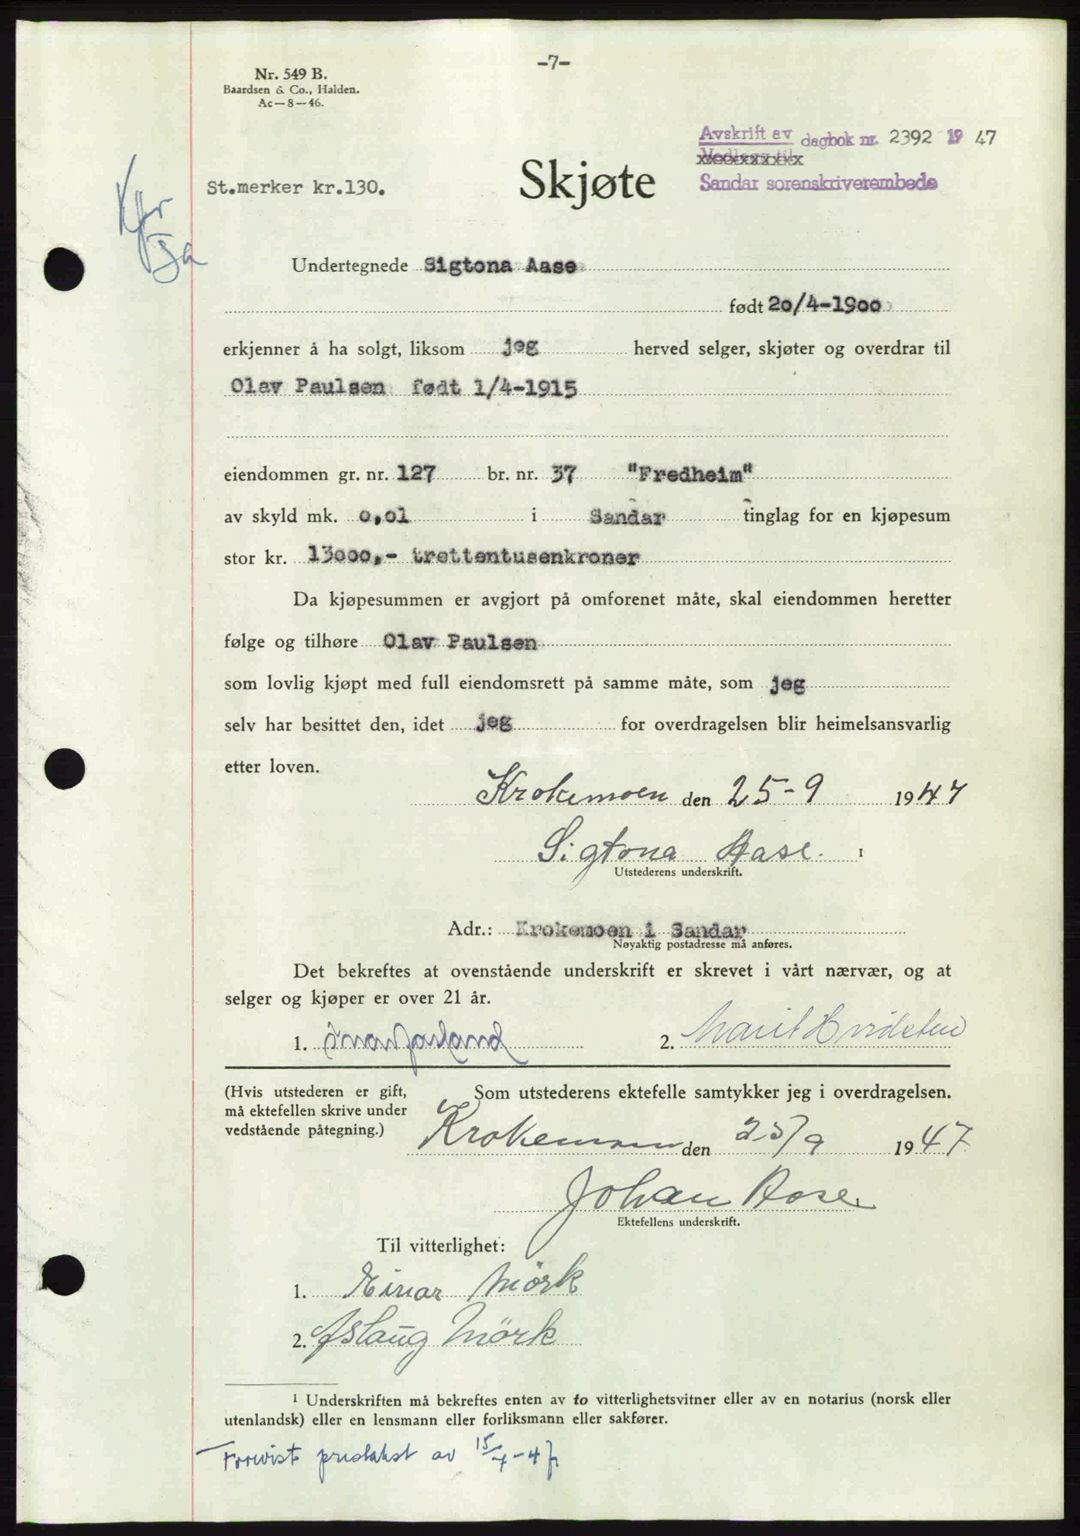 -7-
Nr. 549 B.
Baardsen & Co., Halden.
Ac—8—46.
Avskrift av dagbok nr. 2392 19 47
Sandar sorenskriverembede
St.merker kr.130.
Skjøte
Undertegnede Sigtona Aase
født 20/4-1900
erkjenner å ha solgt, liksom jeg herved selger, skjøter og overdrar til
Olav Paulsen født 1/4-1915
eiendommen gr. nr. 127 br. nr. 37 "Fredheim"
av skyld mk. 0,01 i Sandar tinglag for en kjøpesum
stor kr. 13000,- trettentusenkroner
Da kjøpesummen er avgjort på omforenet måte, skal eiendommen heretter
følge og tilhøre Olav Paulsen
som lovlig kjøpt med full eiendomsrett på samme måte, som jeg
selv har besittet den, idet jeg for overdragelsen blir heimelsansvarlig
etter loven.
Krokemoen den 25-9 1947
Sigtona Aase. 1
Utstederens underskrift.
Adr.: Krokemoen i Sandar
Nøyaktig postadresse må anføres.
Det bekreftes at ovenstående underskrift er skrevet i vårt nærvær, og at
selger og kjøper er over 21 år.
1. 2. Marit Hvidsten
(Hvis utstederen er gift,
må ektefellen skrive under
vedstående påtegning.)
Som utstederens ektefelle samtykker jeg i overdragelsen.
Krokemoen den 25/9 1947
Johan Aase
Ektefellens underskrift.
Til vitterlighet:
1. Einar Mörk
2. Aslaug Mörk
1 Underskriften må bekreftes enten av to vitterlighetsvitner eller av en notarius (norsk eller
utenlandsk) eller en lensmann eller forliksmann eller sakfører.
av 15/7-47